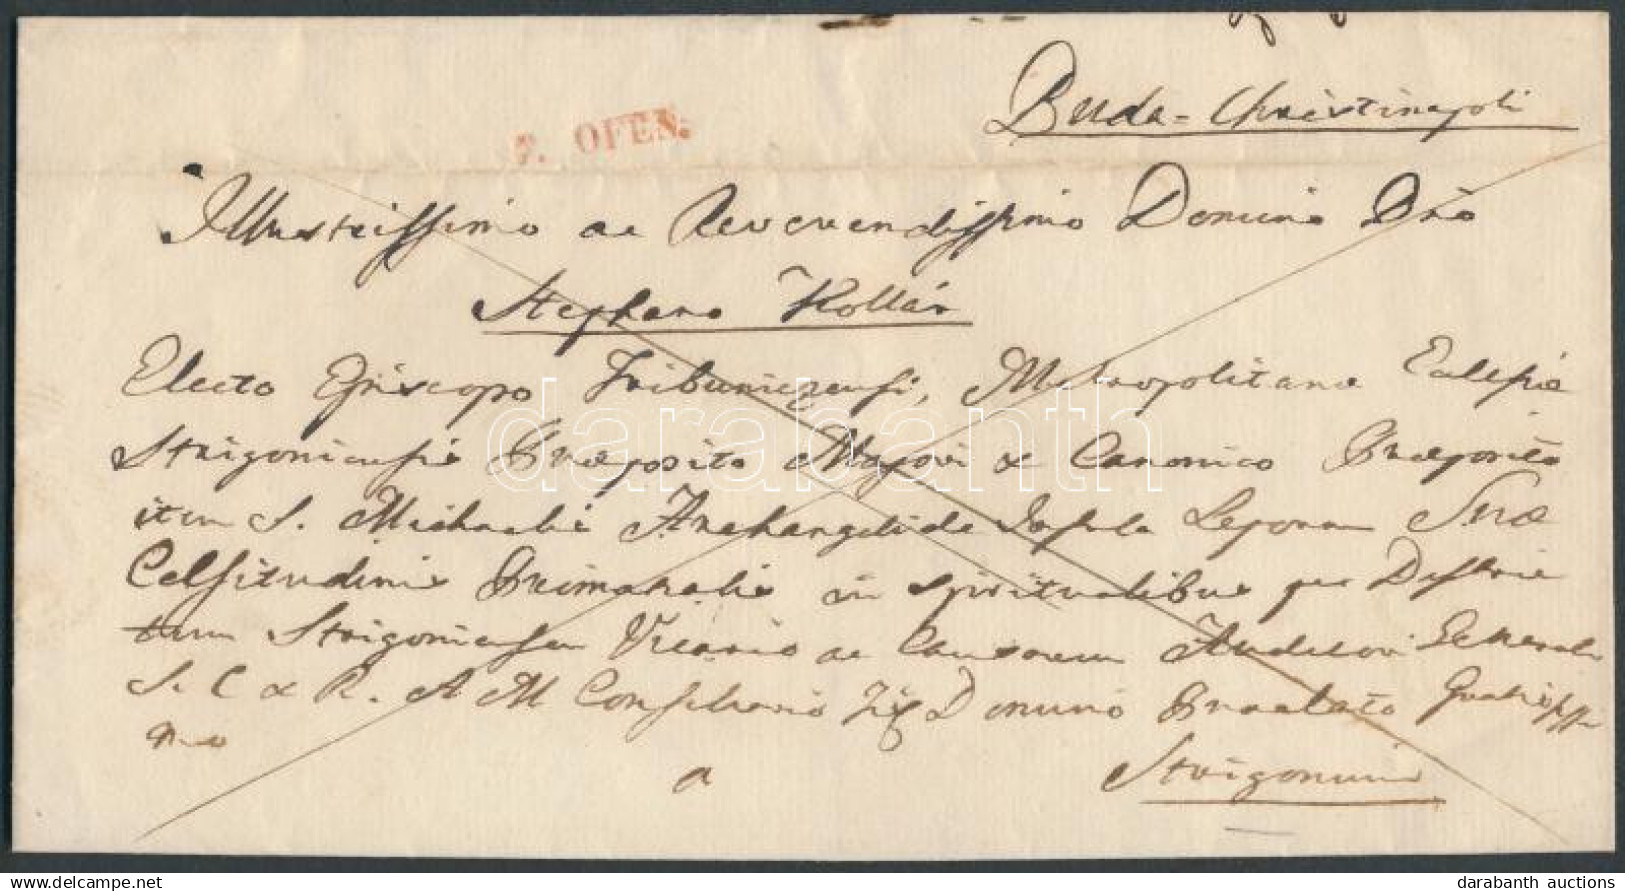 Buda-Christinapoli
OFEN.
Illustrissimo ac Reverendissimo Domino Dno
Stephano Kollár
Electo Episcopo Tribunicensi, Metropolitanae Ecclesiae
Strigoniensis Praeposito Majori & Canonico Praeposito
item S. Michaelis Archangeli de Insula Leporum Suae
Celsitudinis Primatialis in Spiritualibus per Districtum
Strigoniensem Vicario ac Causarum Auditori Generali
S. C & R. A M Consiliario Domino Praelato Gratiosissi
mo
a
Strigonium
darabanth
darabanth auctions